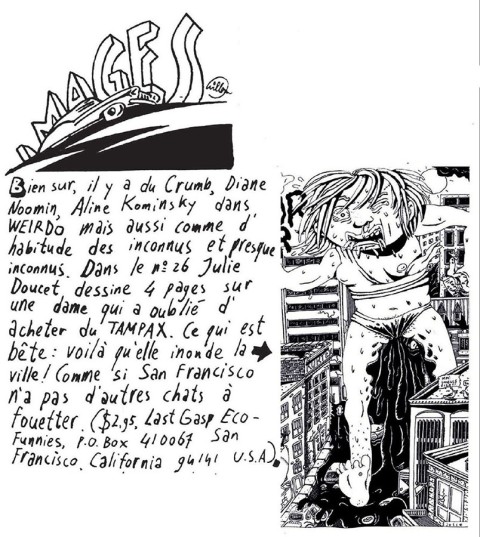 IMAGES
Willem
Bien sur, il y a du Crumb, Diane
Noomin, Aline Kominsky dans
WEIRDO mais aussi comme d'
habitude des inconnus et presque
inconnus. Dans le nº 26 Julie
Doucet dessine 4 pages sur
une dame qui a oublié d'
acheter du TAMPAX. Ce qui est
bête : voilà qu'elle inonde la
ville! Comme si San Francisco
n'a pas d'autres chats à
fouetter. ($2,95, Last Gasp Eco-
Funnies, P.O. Box 410067 San
Francisco, California 94141 U.S.A.)